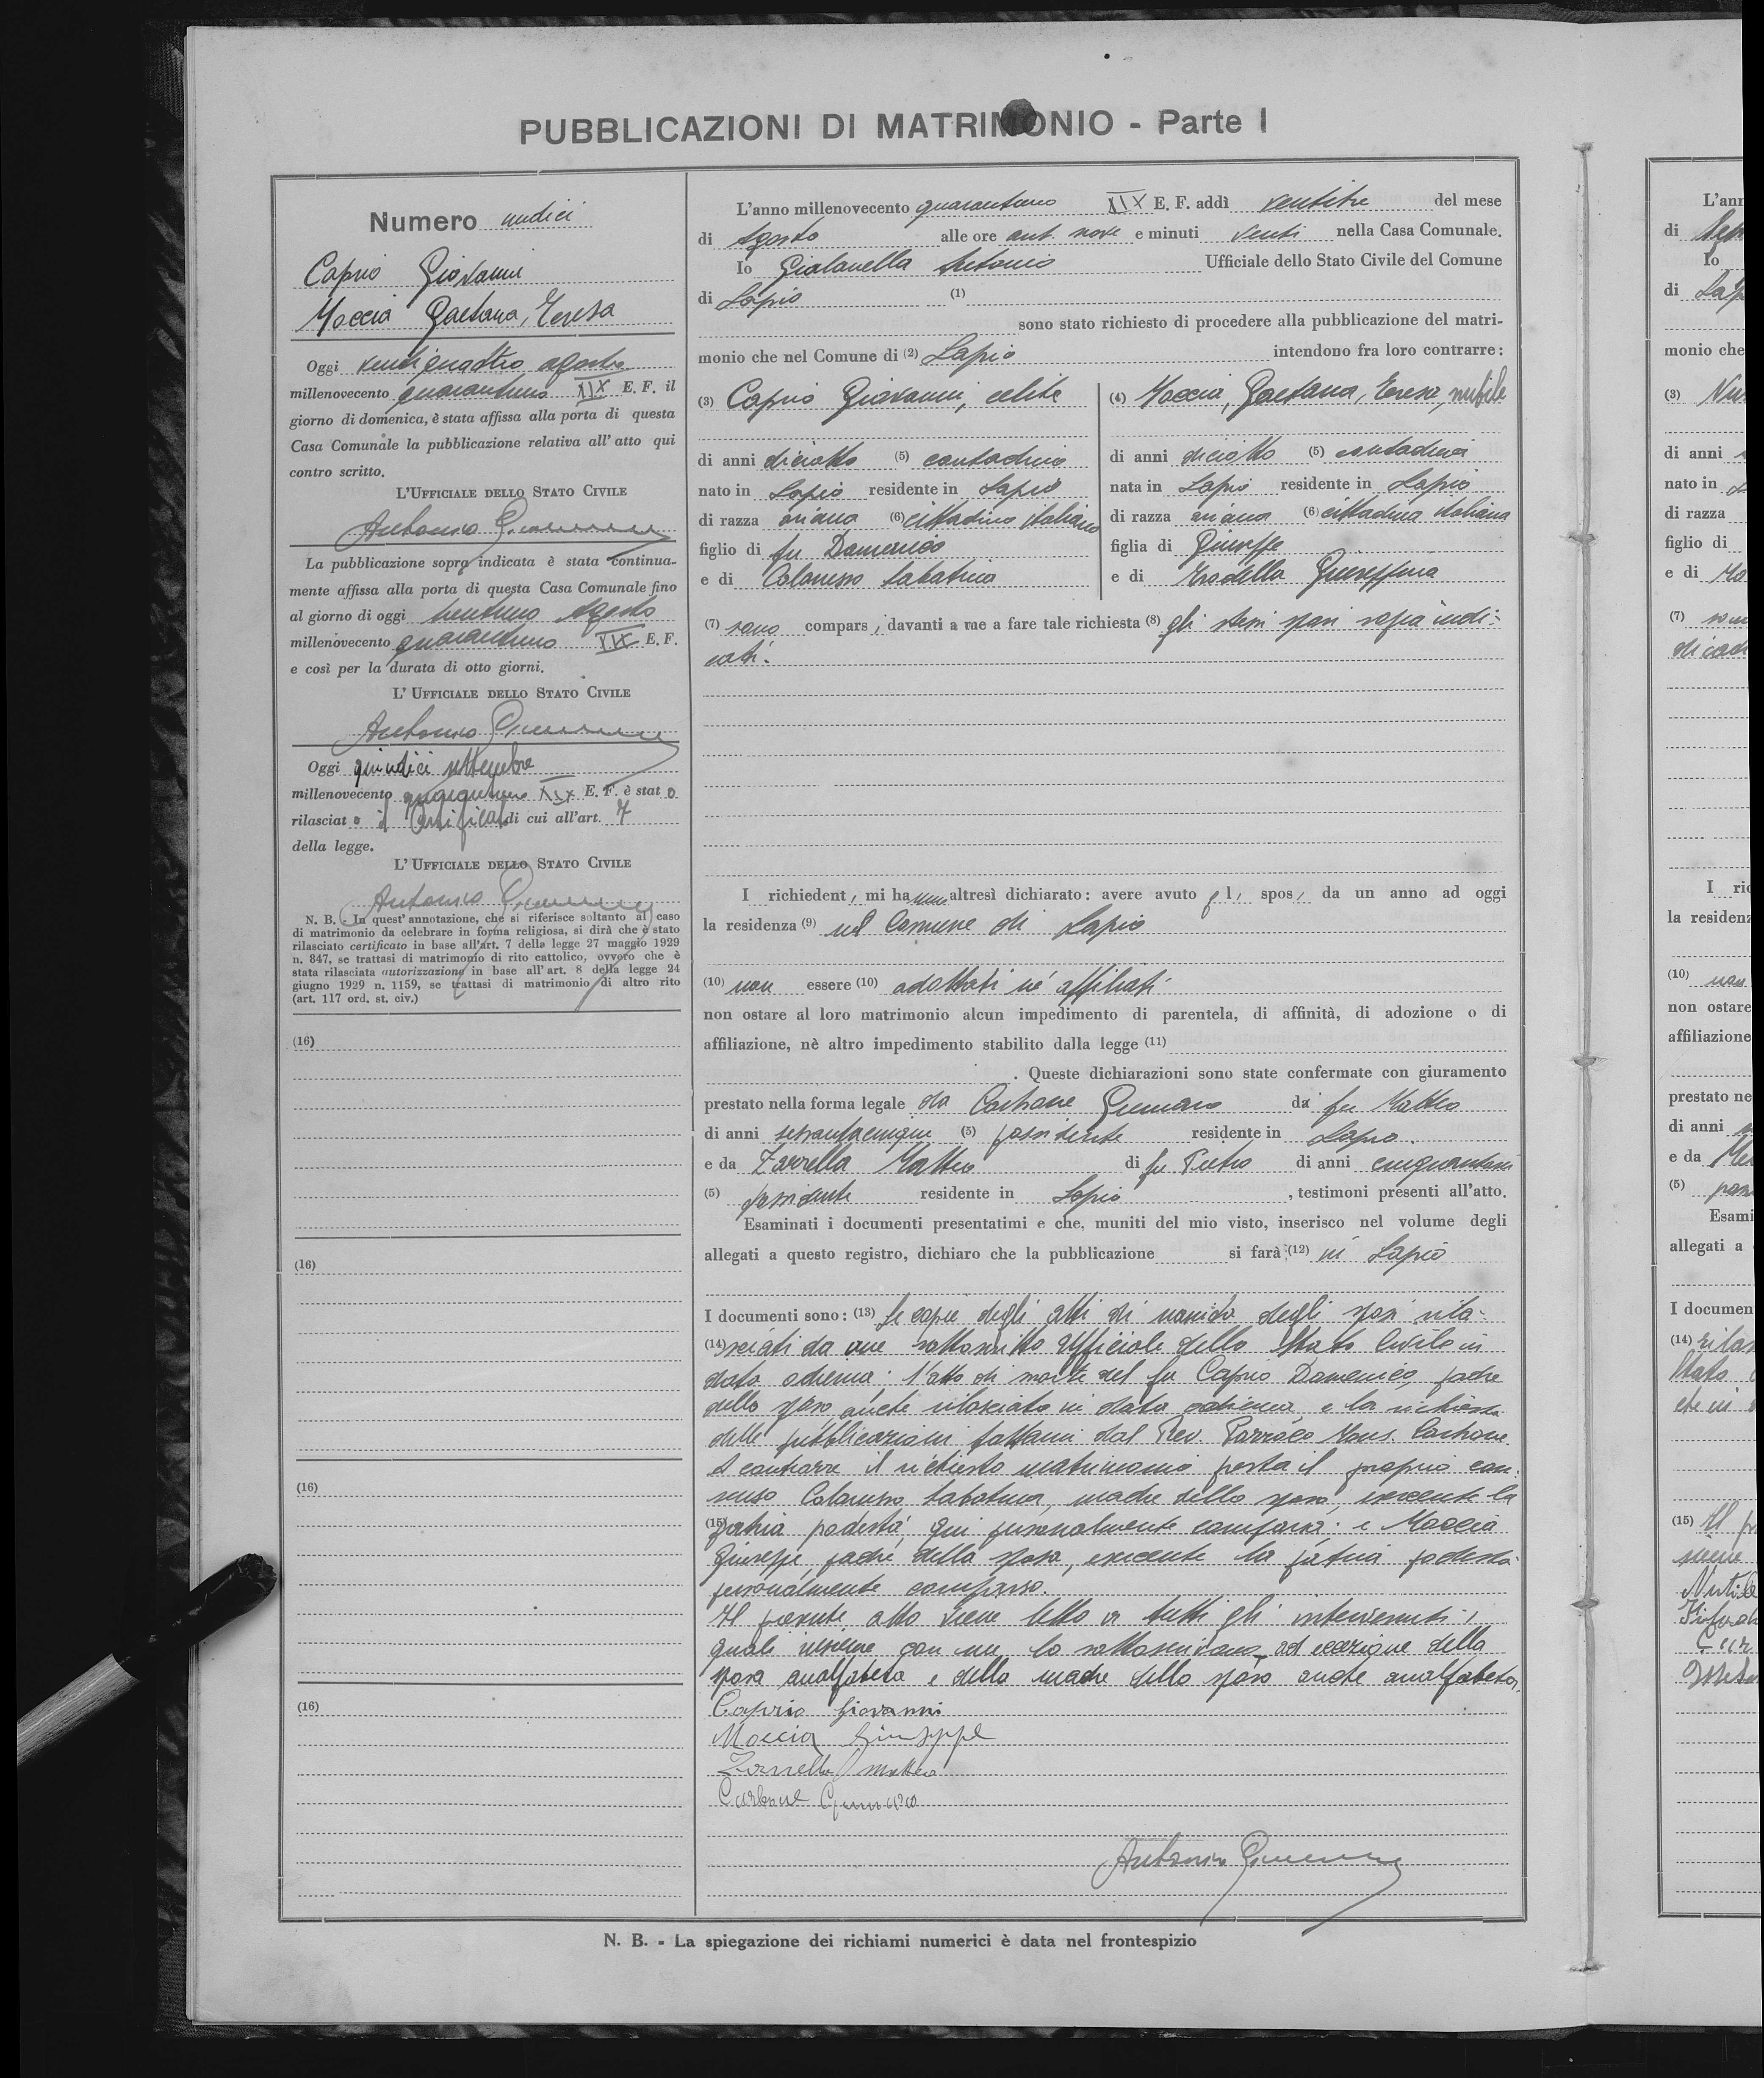 PUBBLICAZIONI DI MATRIMONIO - Parte I
Numero undici
Caprio Giovanni
Moccia Gaetana, Teresa
Oggi ventiquattro agosto
millenovecento quarantuno XIX E. F. il
giorno di domenica, è stata affissa alla porta di questa
Casa Comunale la pubblicazione relativa all'atto qui
contro scritto.
L'UFFICIALE DELLO STATO CIVILE
Antonio
La pubblicazione sopra indicata è stata continua-
mente affissa alla porta di questa Casa Comunale fino
al giorno di oggi trentuno Agosto
millenovecento quarantuno XIX E. F.
e così per la durata di otto giorni.
L'UFFICIALE DELLO STATO CIVILE
Antonio
Oggi quindici settembre
millenovecento quarantuno XIX E. F. è stato
rilasciato il Certificato di cui all'art. 7
della legge.
L'UFFICIALE DELLO STATO CIVILE
Antonio
N. B. - In quest'annotazione, che si riferisce soltanto al caso
di matrimonio da celebrare in forma religiosa, si dirà che è stato
rilasciato certificato in base all'art. 7 della legge 27 maggio 1929
n. 847, se trattasi di matrimonio di rito cattolico, ovvero che è
stata rilasciata autorizzazione in base all'art. 8 della legge 24
giugno 1929 n. 1159, se trattasi di matrimonio di altro rito
(art. 117 ord. st. civ.)
(16)
(16)
(16)
(16)
L'anno millenovecento quarantuno XIX E. F. addì ventitre del mese
di Agosto alle ore ant. nove e minuti venti nella Casa Comunale.
Io Gialanella Antonio Ufficiale dello Stato Civile del Comune
di Lapio (1)
sono stato richiesto di procedere alla pubblicazione del matri-
monio che nel Comune di (2) Lapio intendono fra loro contrarre:
(3) Caprio Giovanni, celibe
di anni diciotto (5) contadino
nato in Lapio residente in Lapio
di razza ariana (6) cittadino italiano
figlio di fu Domenico
e di Colarusso Sabatina
(4) Moccia, Gaetana, Teresa, nubile
di anni diciotto (5) contadina
nata in Lapio residente in Lapio
di razza ariana (6) cittadina italiana
figlia di Giuseppe
e di Giuseppina
(7) sono comparsi, davanti a me a fare tale richiesta (8) gli stessi sposi sopra indi-
cati.
I richiedenti, mi hanno altresì dichiarato: avere avuto gli sposi, da un anno ad oggi
la residenza (9) nel Comune di Lapio
(10) non essere (10) adottati né affiliati
non ostare al loro matrimonio alcun impedimento di parentela, di affinità, di adozione o di
affiliazione, nè altro impedimento stabilito dalla legge (11)
. Queste dichiarazioni sono state confermate con giuramento
prestato nella forma legale da Carbone Gennaro di fu Matteo
di anni settantacinque (5) possidente residente in Lapio.
e da Zarrella Matteo di fu Pietro di anni
(5) possidente residente in Lapio, testimoni presenti all'atto.
Esaminati i documenti presentatimi e che, muniti del mio visto, inserisco nel volume degli
allegati a questo registro, dichiaro che la pubblicazione si farà (12) in Lapio
I documenti sono: (13) le copie degli atti di nascita degli sposi rila-
(14) sciati da me sottoscritto Ufficiale dello Stato Civile in
data odierna; l'atto di morte del fu Caprio Domenico, padre
dello sposo, anche rilasciato in data odierna e la richiesta
delle pubblicazioni fattami dal Rev. Parroco Mons. Carbone.
A contrarre il richiesto matrimonio presta il proprio con-
senso Colarusso Sabatina, madre dello sposo, esercente la
(15) patria podestà, qui personalmente comparsa; e Moccia
Giuseppe, padre della sposa, esercente la patria podestà
personalmente comparso.
Il presente atto viene letto a tutti gli intervenuti i
quali insieme con me lo sottoscrivono ad eccezione della
sposa analfabeta e della madre dello sposo anche analfabeta.
Caprio Giovanni
Moccia Giuseppe
Zarrella Matteo
Carbone Gennaro
Antonio
N. B. - La spiegazione dei richiami numerici è data nel frontespizio
L'ann
di
Io
di Lap
monio che
(3)
di anni
nato in
di razza
figlio di
e di
(7)
I ric
la residenz
(10) non
non ostare
affiliazione
prestato ne
di anni
e da
(5)
Esami
allegati a
I documen
(14)
(15)